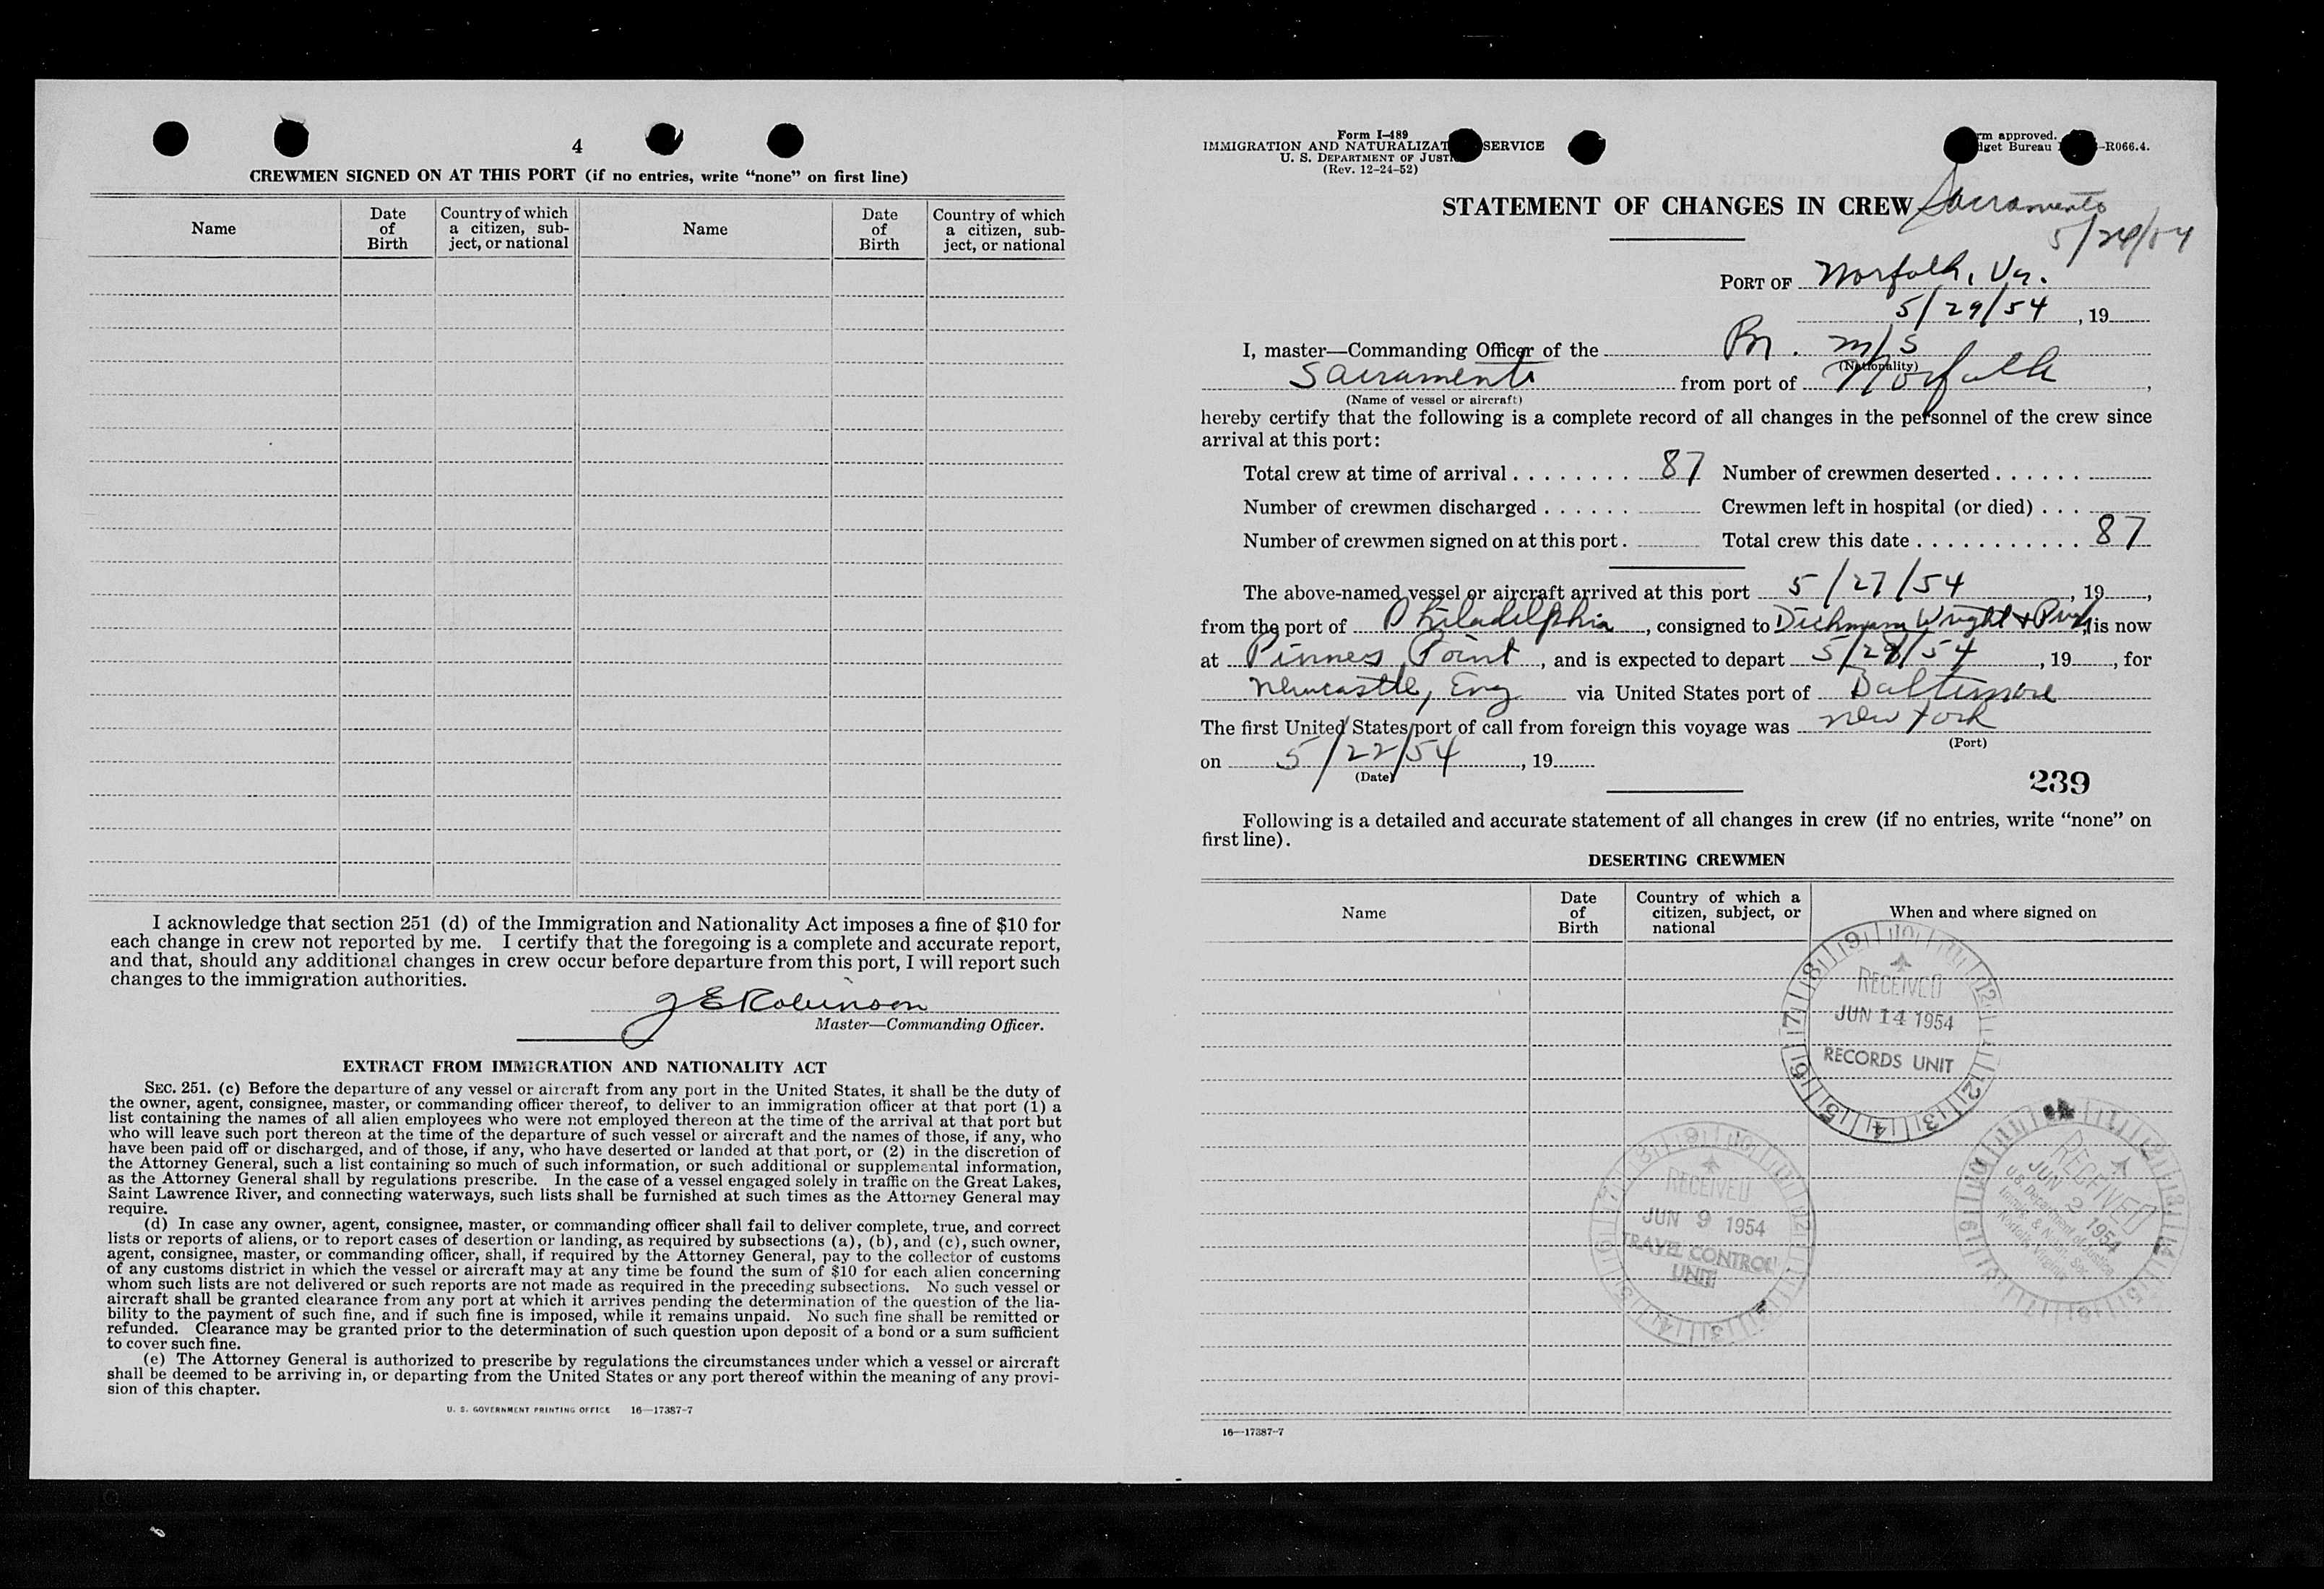 4
CREWMEN SIGNED ON AT THIS PORT (if no entries, write “none” on first line)
Name
Date
of
Birth
Country of which
a citizen, sub-
ject, or national
Name
Date
of
Birth
Country of which
a citizen, sub-
ject, or national
I acknowledge that section 251 (d) of the Immigration and Nationality Act imposes a fine of $10 for
each change in crew not reported by me. I certify that the foregoing is a complete and accurate report,
and that, should any additional changes in crew occur before departure from this port, I will report such
changes to the immigration authorities.
J E Robinson
Master—Commanding Officer.
EXTRACT FROM IMMIGRATION AND NATIONALITY ACT
SEC. 251. (c) Before the departure of any vessel or aircraft from any port in the United States, it shall be the duty of
the owner, agent, consignee, master, or commanding officer thereof, to deliver to an immigration officer at that port (1) a
list containing the names of all alien employees who were not employed thereon at the time of the arrival at that port but
who will leave such port thereon at the time of the departure of such vessel or aircraft and the names of those, if any, who
have been paid off or discharged, and of those, if any, who have deserted or landed at that port, or (2) in the discretion of
the Attorney General, such a list containing so much of such information, or such additional or supplemental information,
as the Attorney General shall by regulations prescribe. In the case of a vessel engaged solely in traffic on the Great Lakes,
Saint Lawrence River, and connecting waterways, such lists shall be furnished at such times as the Attorney General may
require.
(d) In case any owner, agent, consignee, master, or commanding officer shall fail to deliver complete, true, and correct
lists or reports of aliens, or to report cases of desertion or landing, as required by subsections (a), (b), and (c), such owner,
agent, consignee, master, or commanding officer, shall, if required by the Attorney General, pay to the collector of customs
of any customs district in which the vessel or aircraft may at any time be found the sum of $10 for each alien concerning
whom such lists are not delivered or such reports are not made as required in the preceding subsections. No such vessel or
aircraft shall be granted clearance from any port at which it arrives pending the determination of the question of the lia-
bility to the payment of such fine, and if such fine is imposed, while it remains unpaid. No such fine shall be remitted or
refunded. Clearance may be granted prior to the determination of such question upon deposit of a bond or a sum sufficient
to cover such fine.
(e) The Attorney General is authorized to prescribe by regulations the circumstances under which a vessel or aircraft
shall be deemed to be arriving in, or departing from the United States or any port thereof within the meaning of any provi-
sion of this chapter.
U. S. GOVERNMENT PRINTING OFFICE 16—17387-7
Form I-489
IMMIGRATION AND NATURALIZAT SERVICE
U. S. DEPARTMENT OF JUSTI
(Rev. 12-24-52)
rm approved.
dget Bureau -R066.4.
STATEMENT OF CHANGES IN CREW Sacramento
5/24/54
PORT OF Norfolk, Va.
5/29/54, 19
I, master—Commanding Officer of the Br. m/s
(Nationality)
Sacramento from port of Norfolk,
(Name of vessel or aircraft)
hereby certify that the following is a complete record of all changes in the personnel of the crew since
arrival at this port:
Total crew at time of arrival . . . . . . . . 87 Number of crewmen deserted . . . . . .
Number of crewmen discharged . . . . . . Crewmen left in hospital (or died) . . .
Number of crewmen signed on at this port. Total crew this date . . . . . . . . . . . . 87
The above-named vessel or aircraft arrived at this port 5/27/54, 19,
from the port of Philadelphia, consigned to Dichmann Wright & Pugh, is now
at Pinners Point, and is expected to depart 5/28/54, 19, for
Newcastle, Eng via United States port of Baltimore
The first United States port of call from foreign this voyage was New York
(Port)
on 5/22/54, 19
(Date)
239
Following is a detailed and accurate statement of all changes in crew (if no entries, write “none” on
first line).
DESERTING CREWMEN
Name
Date
of
Birth
Country of which a
citizen, subject, or
national
When and where signed on
RECEIVED
JUN 14 1954
RECORDS UNIT
RECEIVED
JUN 9 1954
TRAVEL CONTROL
UNIT
RECEIVED
JUN 2 1954
U.S. Department of Justice
Immig. & Natzn. Ser.
Norfolk Virginia
16—17387-7